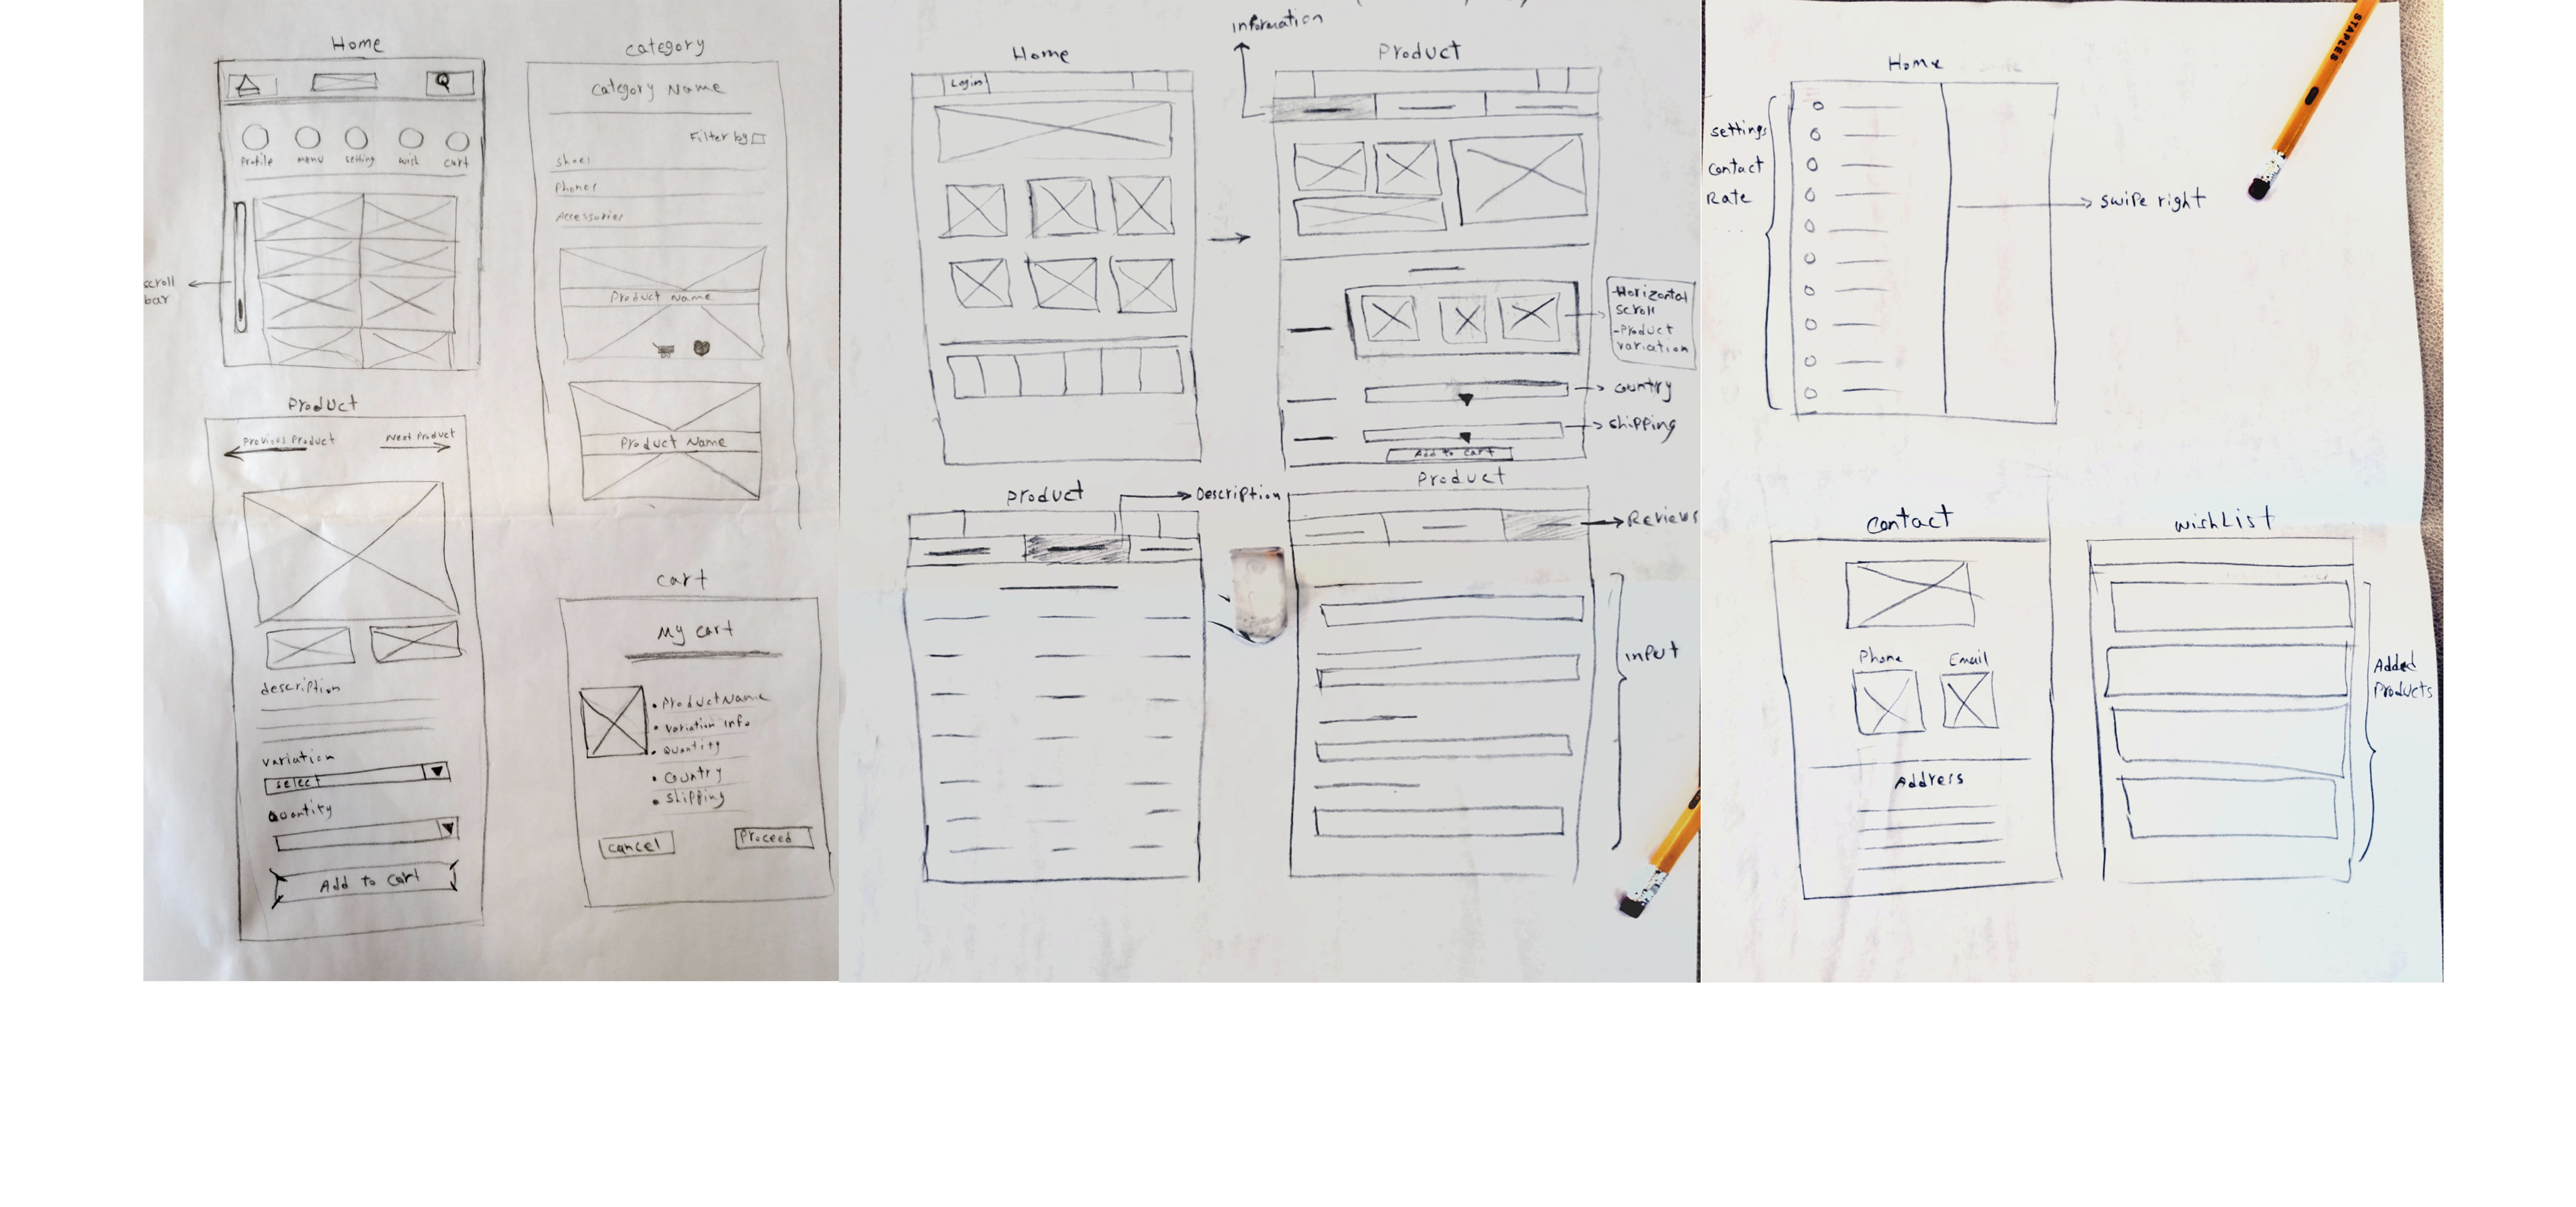 Home
Q
Profile
menu
setting
wish
cart
scroll
bar
category
category Name
Filter by
shoes
Phones
Accessories
Product Name
Product Name
Product
Previous Product
Next Product
description
variation
select
Quantity
Add to cart
cart
My cart
• Product Name
• variation info
• Quantity
• country
• shipping
cancel
Proceed
Information
Home
Login
Product
-Horizontal
scroll
-Product
variation
country
shipping
Add to cart
Product
Description
Product
Reviews
input
Home
settings
contact
Rate
swipe right
STAPLES
contact
Phone
Email
Address
wishList
Added
Products